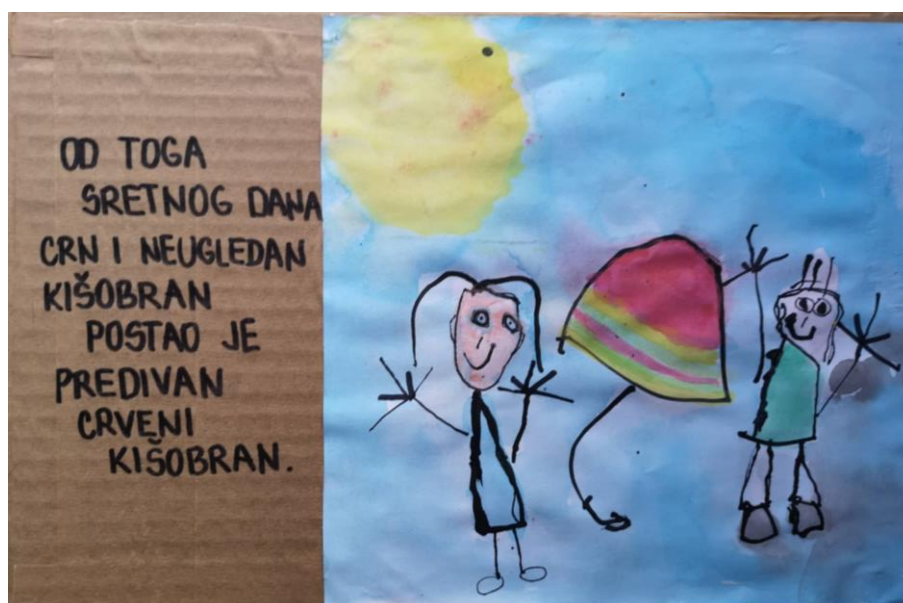 OD TOGA
SRETNOG DANA
CRN I NEUGLEDAN
KIŠOBRAN
POSTAO JE
PREDIVAN
CRVENI
KIŠOBRAN.